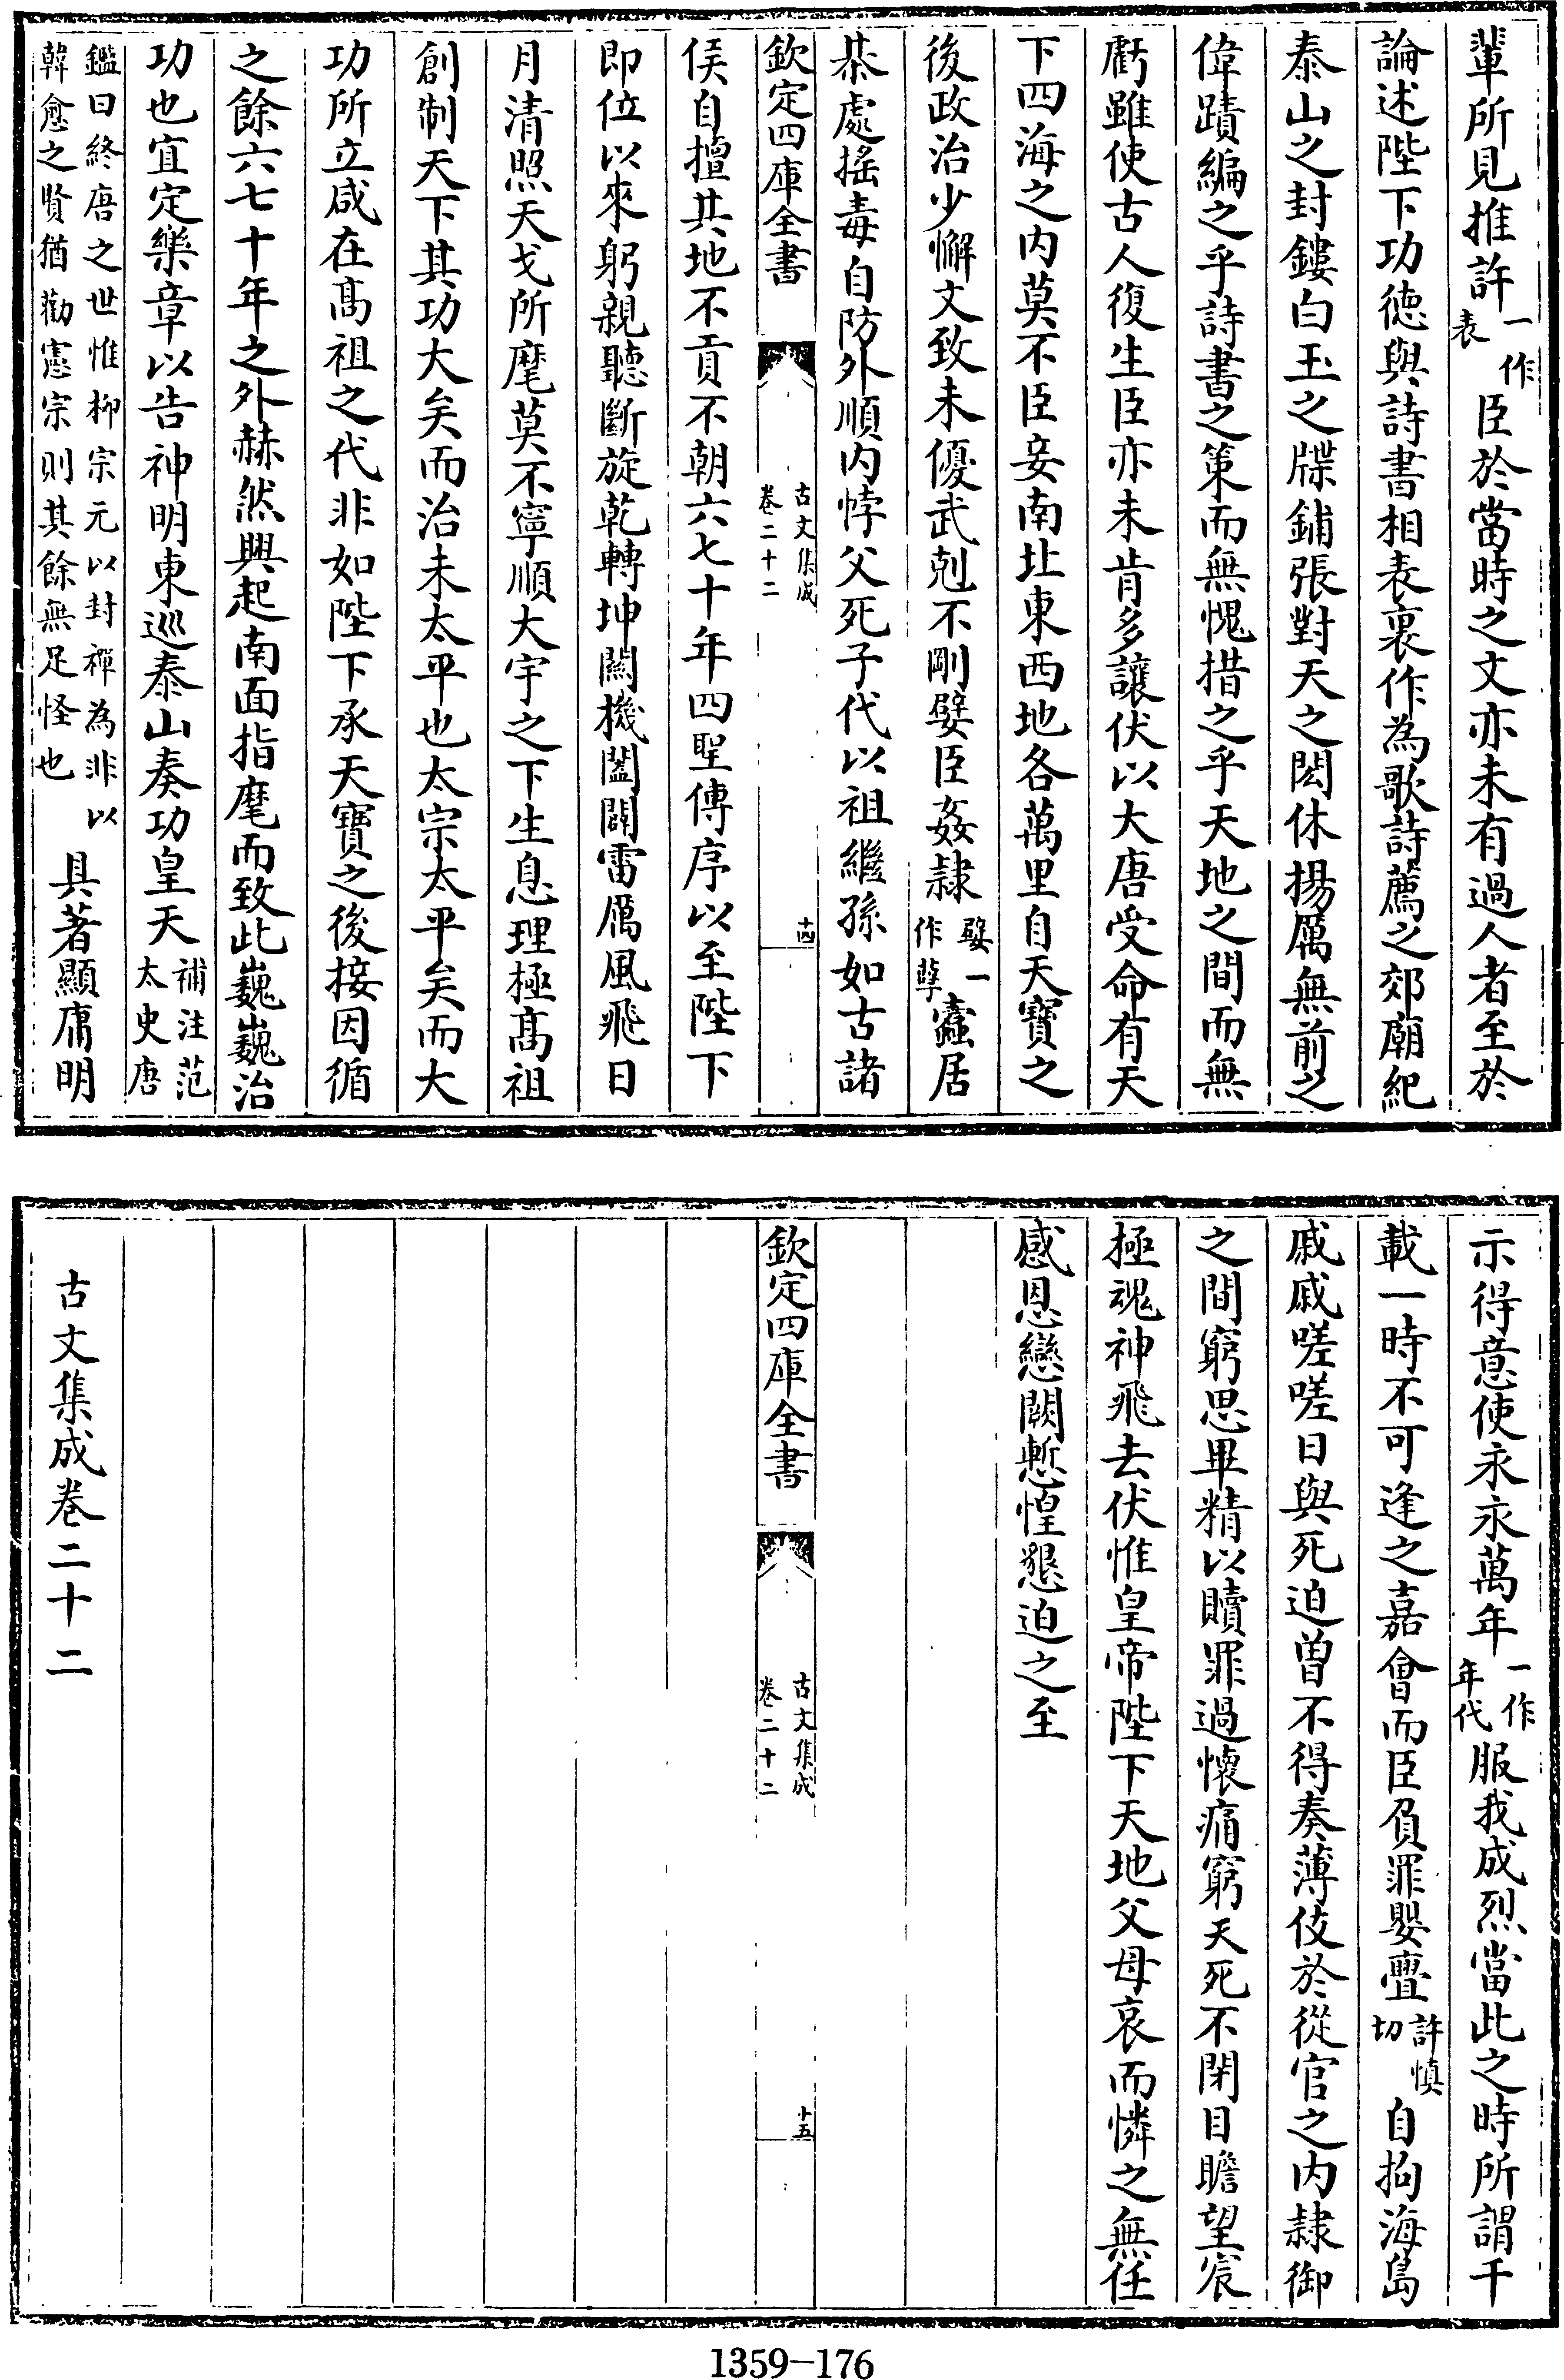 輩所見推許一作表臣於當時之文亦未有過人者至於
論述陛下功德與詩書相表裏作為歌詩薦之郊廟紀
泰山之封鏤白玉之牒鋪張對天之閎休揚厲無前之
偉蹟編之乎詩書之策而無愧措之乎天地之間而無
虧雖使古人復生臣亦未肯多讓伏以大唐受命有天
下四海之内莫不臣妾南北東西地各萬里自天寶之
後政治少懈文致未優武剋不剛嬖臣姦隸嬖一作孽蠹居
棊處搖毒自防外順内悖父死子代以祖繼孫如古諸
欽定四庫全書
古文集成
卷二十二
十四
侯自擅其地不貢不朝六七十年四聖傳序以至陛下
即位以來躬親聽斷旋乾轉坤關機闔闢雷厲風飛日
月清照天戈所麾莫不寧順大宇之下生息理極高祖
創制天下其功大矣而治未太平也太宗太平矣而大
功所立咸在高祖之代非如陛下承天寶之後接因循
之餘六七十年之外赫然興起南面指麾而致此巍巍治
功也宜定樂章以告神明東巡泰山奏功皇天補注范太史唐
鑑曰終唐之世惟柳宗元以封禪為非以韓愈之賢猶勸憲宗則其餘無足怪也具著顯庸明
示得意使永永萬年一作年代服我成烈當此之時所謂千
載一時不可逢之嘉會而臣負罪嬰舋許慎切自拘海島
戚戚嗟嗟日與死迫曾不得奏薄伎於從官之内隸御
之間窮思畢精以贖罪過懷痛窮天死不閉目瞻望宸
極魂神飛去伏惟皇帝陛下天地父母哀而憐之無任
感恩戀闕慙惶懇迫之至
欽定四庫全書
古文集成
卷二十二
十五
古文集成卷二十二
1359-176